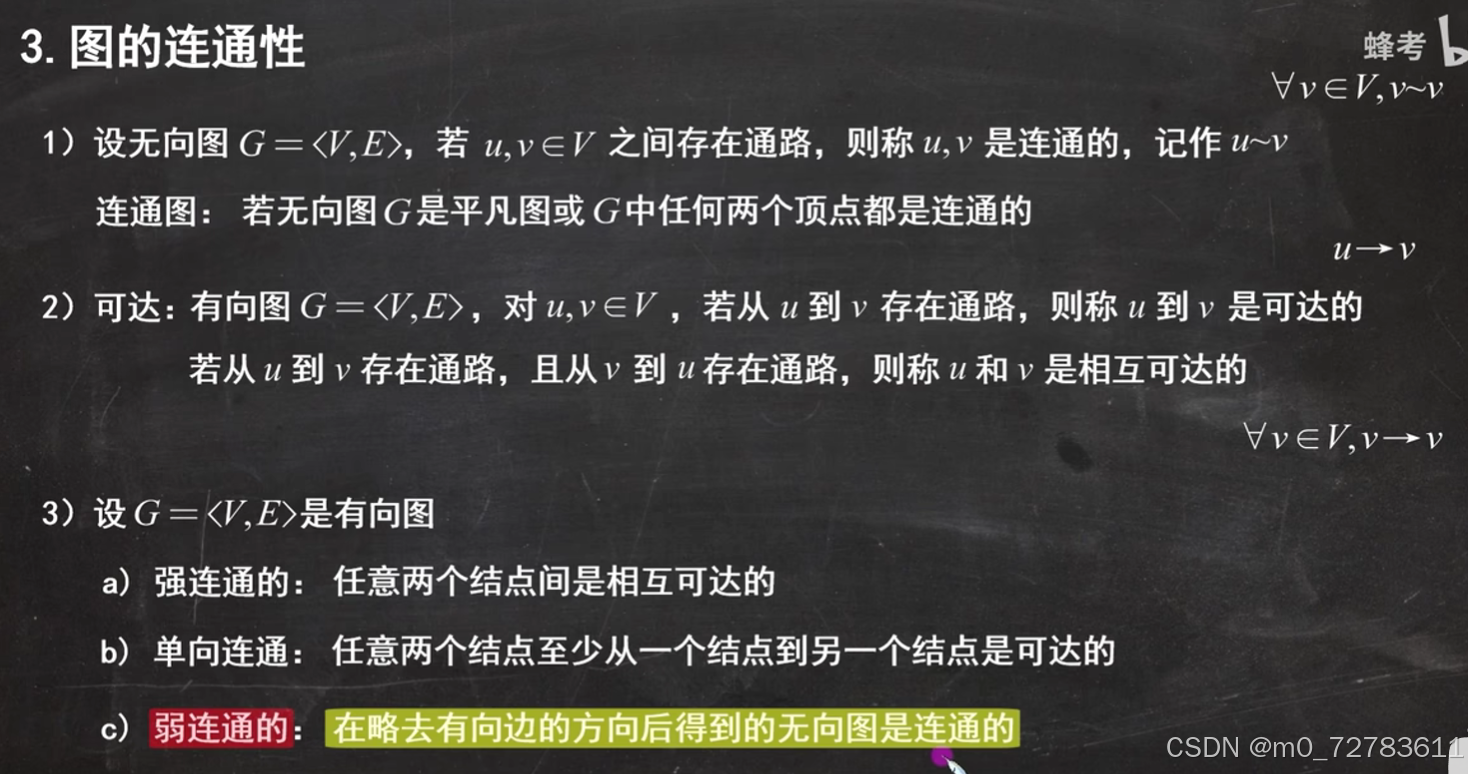 3. 图的连通性
蜂考 b
∀v∈V,v~v
1）设无向图 G=<V,E>，若 u,v∈V 之间存在通路，则称 u,v 是连通的，记作 u~v
连通图： 若无向图G是平凡图或G中任何两个顶点都是连通的
u→v
2）可达：有向图 G=<V,E>，对 u,v∈V ，若从 u 到 v 存在通路，则称 u 到 v 是可达的
若从 u 到 v 存在通路，且从 v 到 u 存在通路，则称 u 和 v 是相互可达的
∀v∈V,v→v
3）设 G=<V,E>是有向图
a） 强连通的： 任意两个结点间是相互可达的
b） 单向连通： 任意两个结点至少从一个结点到另一个结点是可达的
c） 弱连通的： 在略去有向边的方向后得到的无向图是连通的
CSDN @m0_72783611